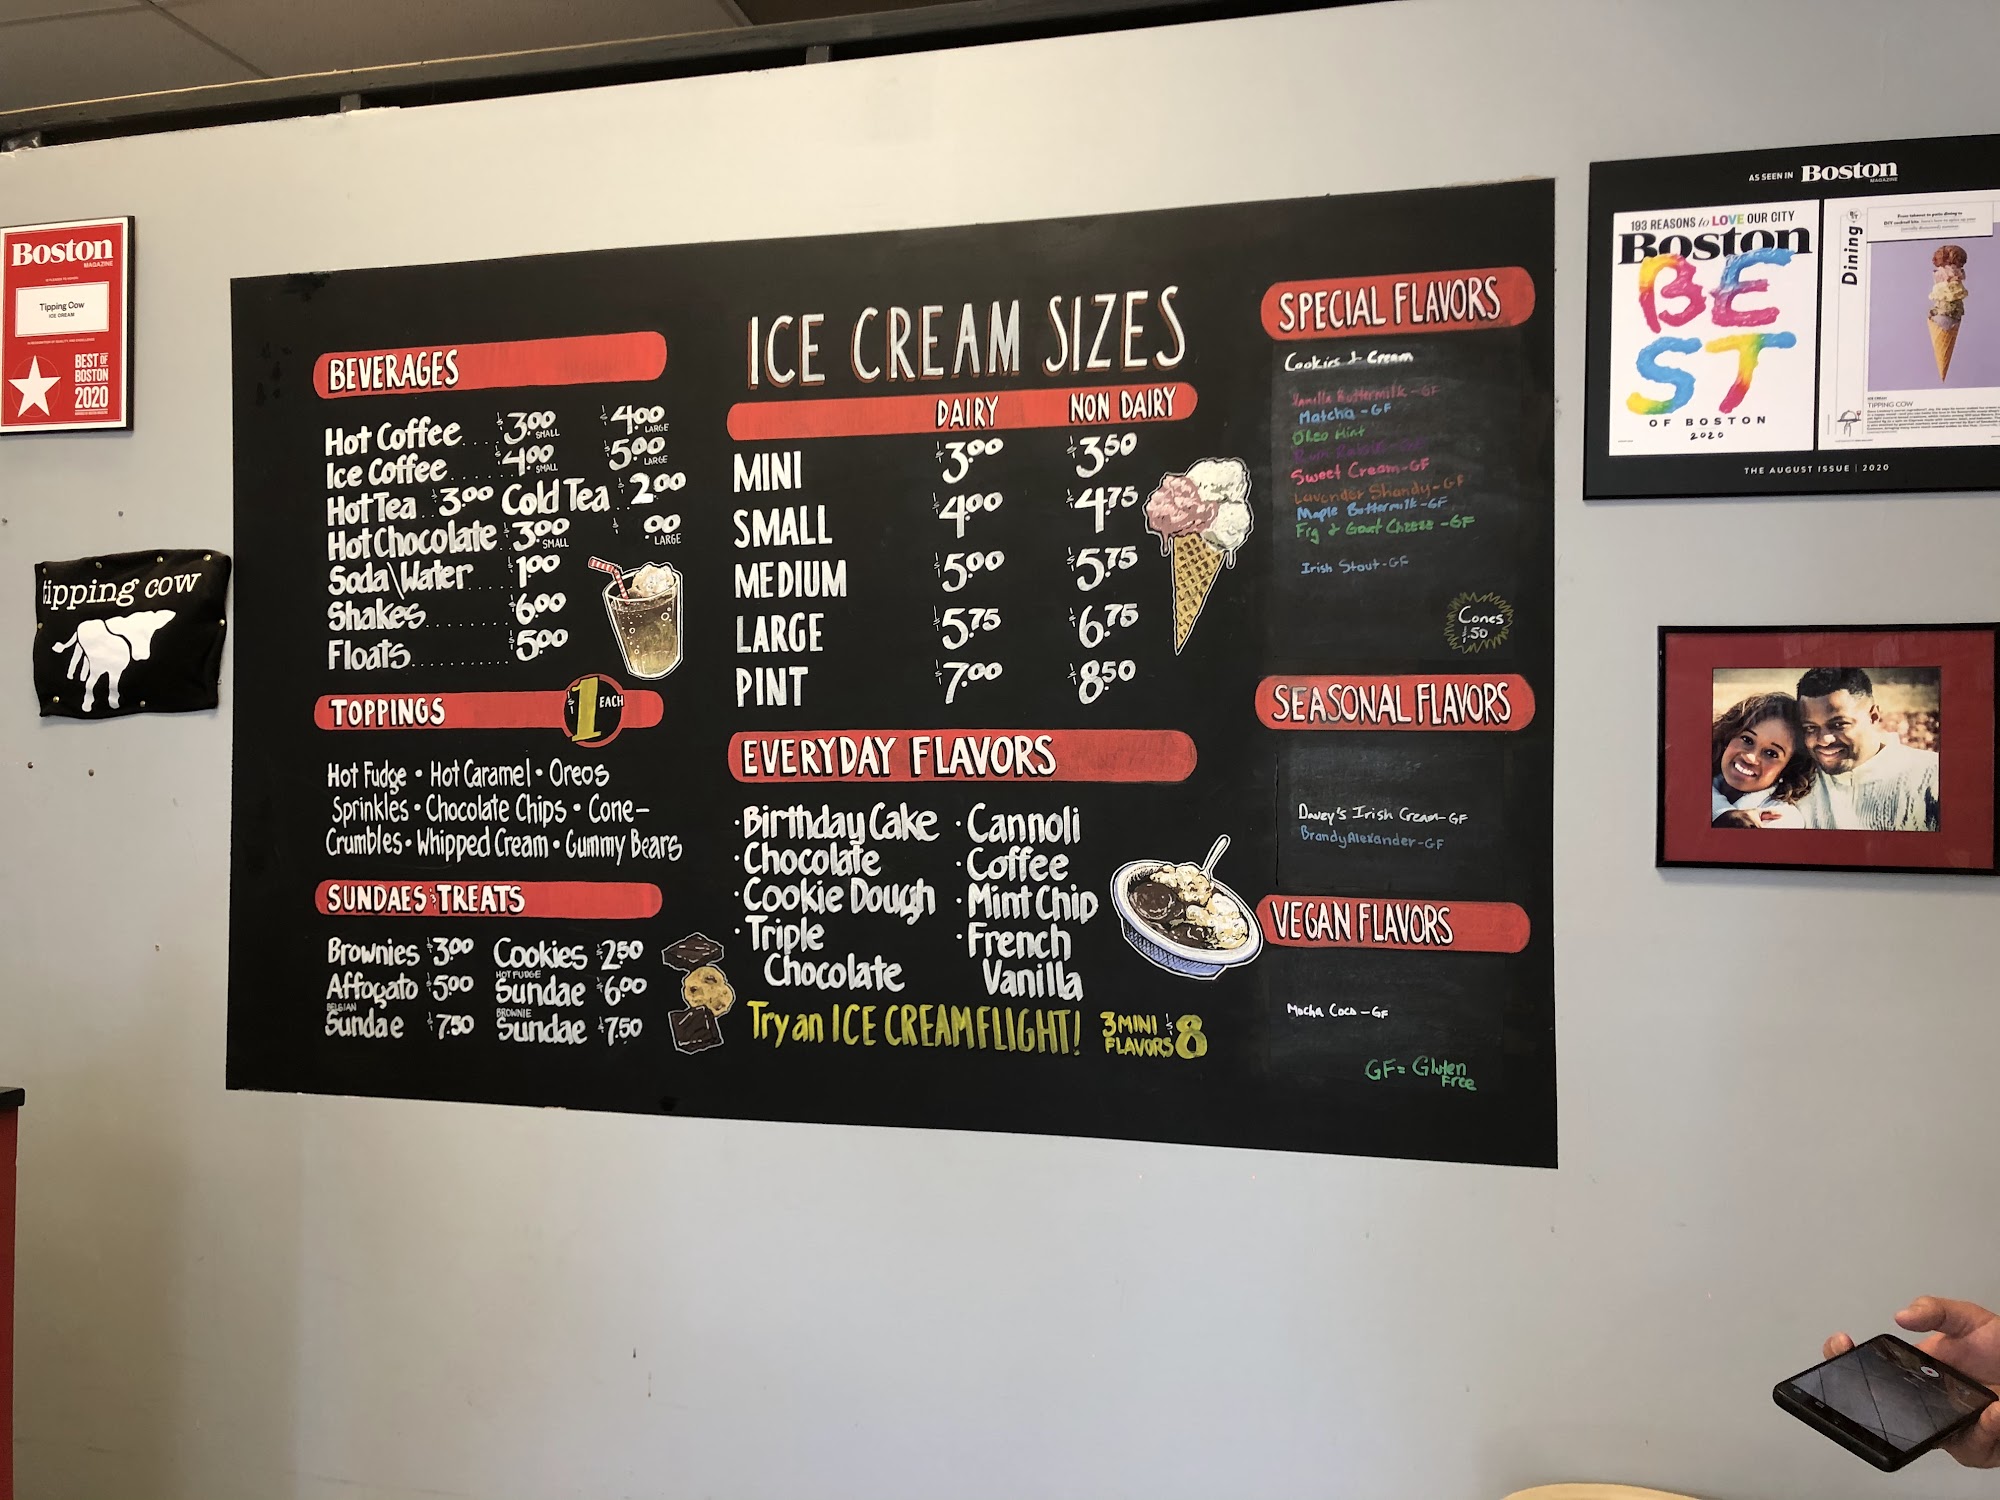 Boston
MAGAZINE
Tipping Cow
ICE CREAM
BEST OF
BOSTON
2020
tipping cow
BEVERAGES
Hot Coffee... $3.00 SMALL $4.00 LARGE
Ice Coffee...... $4.00 SMALL $5.00 LARGE
Hot Tea.. $3.00 Cold Tea.. $2.00
Hot Chocolate. $3.00 SMALL $ .00 LARGE
Soda\Water.... $1.00
Shakes........ $6.00
Floats.......... $5.00
TOPPINGS $1 EACH
Hot Fudge • Hot Caramel • Oreos
Sprinkles • Chocolate Chips • Cone-
Crumbles • Whipped Cream • Gummy Bears
SUNDAES & TREATS
Brownies $3.00 Cookies $2.50
Affogato $5.00 HOT FUDGE Sundae $6.00
BELGIAN Sundae $7.50 BROWNIE Sundae $7.50
ICE CREAM SIZES
DAIRY NON DAIRY
MINI $3.00 $3.50
SMALL $4.00 $4.75
MEDIUM $5.00 $5.75
LARGE $5.75 $6.75
PINT $7.00 $8.50
EVERYDAY FLAVORS
• Birthday Cake • Cannoli
• Chocolate • Coffee
• Cookie Dough • Mint Chip
• Triple • French
Chocolate Vanilla
Try an ICE CREAM FLIGHT! 3 MINI $8
FLAVORS
SPECIAL FLAVORS
Cookies & Cream
Vanilla Buttermilk - GF
Matcha - GF
Oreo Mint
Sweet Cream - GF
Lavender Shandy - GF
Maple Buttermilk - GF
Fig & Goat Cheese - GF
Irish Stout - GF
Cones
$.50
SEASONAL FLAVORS
Davey's Irish Cream - GF
Brandy Alexander - GF
VEGAN FLAVORS
Mocha Coco - GF
GF = Gluten
Free
AS SEEN IN Boston
MAGAZINE
193 REASONS to LOVE OUR CITY
Boston
BEST
OF BOSTON
2020
Dining
TIPPING COW
THE AUGUST ISSUE | 2020